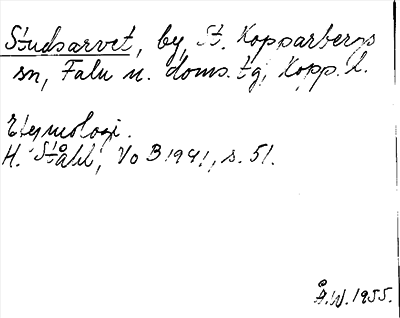 Studsarvet, by, St. Kopparbergs
sn, Falu n. doms. tg, Kopp. l.
Etymologi.
H. Ståhl, VoB 1941, s. 51.
Å.W. 1955.